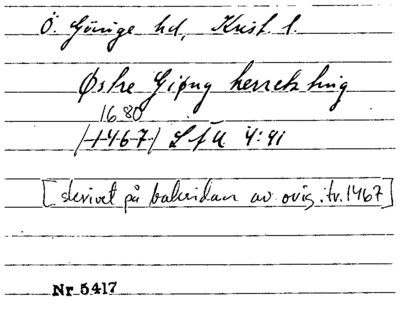 Ö. Göinge hd, Krist. l.
Østre Giøng herretz ting
1680
(1467) LfU 4:41
[skrivet på baksidan av orig. tr. 1467]
Nr 5417